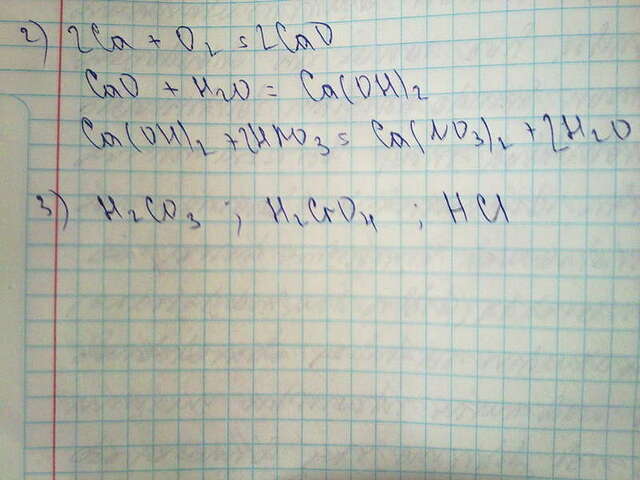 2) 2Ca + O2 = 2CaO
CaO + H2O = Ca(OH)2
Ca(OH)2 + 2HNO3 = Ca(NO3)2 + 2H2O
3) H2CO3 ; H2CrO4 ; HCl